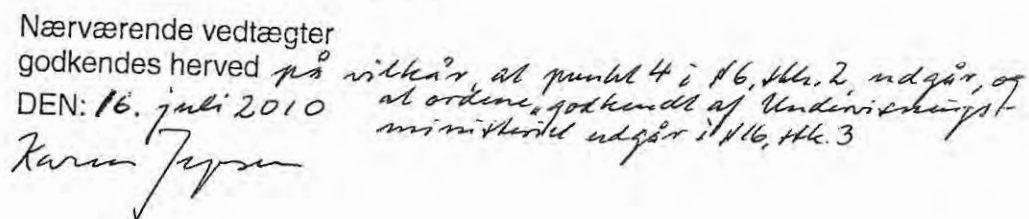 Nærværende vedtægter
godkendes herved på vilkår, at punkt 4 i §6, stk. 2, udgår, og
DEN: 16. juli 2010 at ordene "godkendt af Undervisnings-
ministeriet udgår i §16, stk. 3
Karen Jepsen